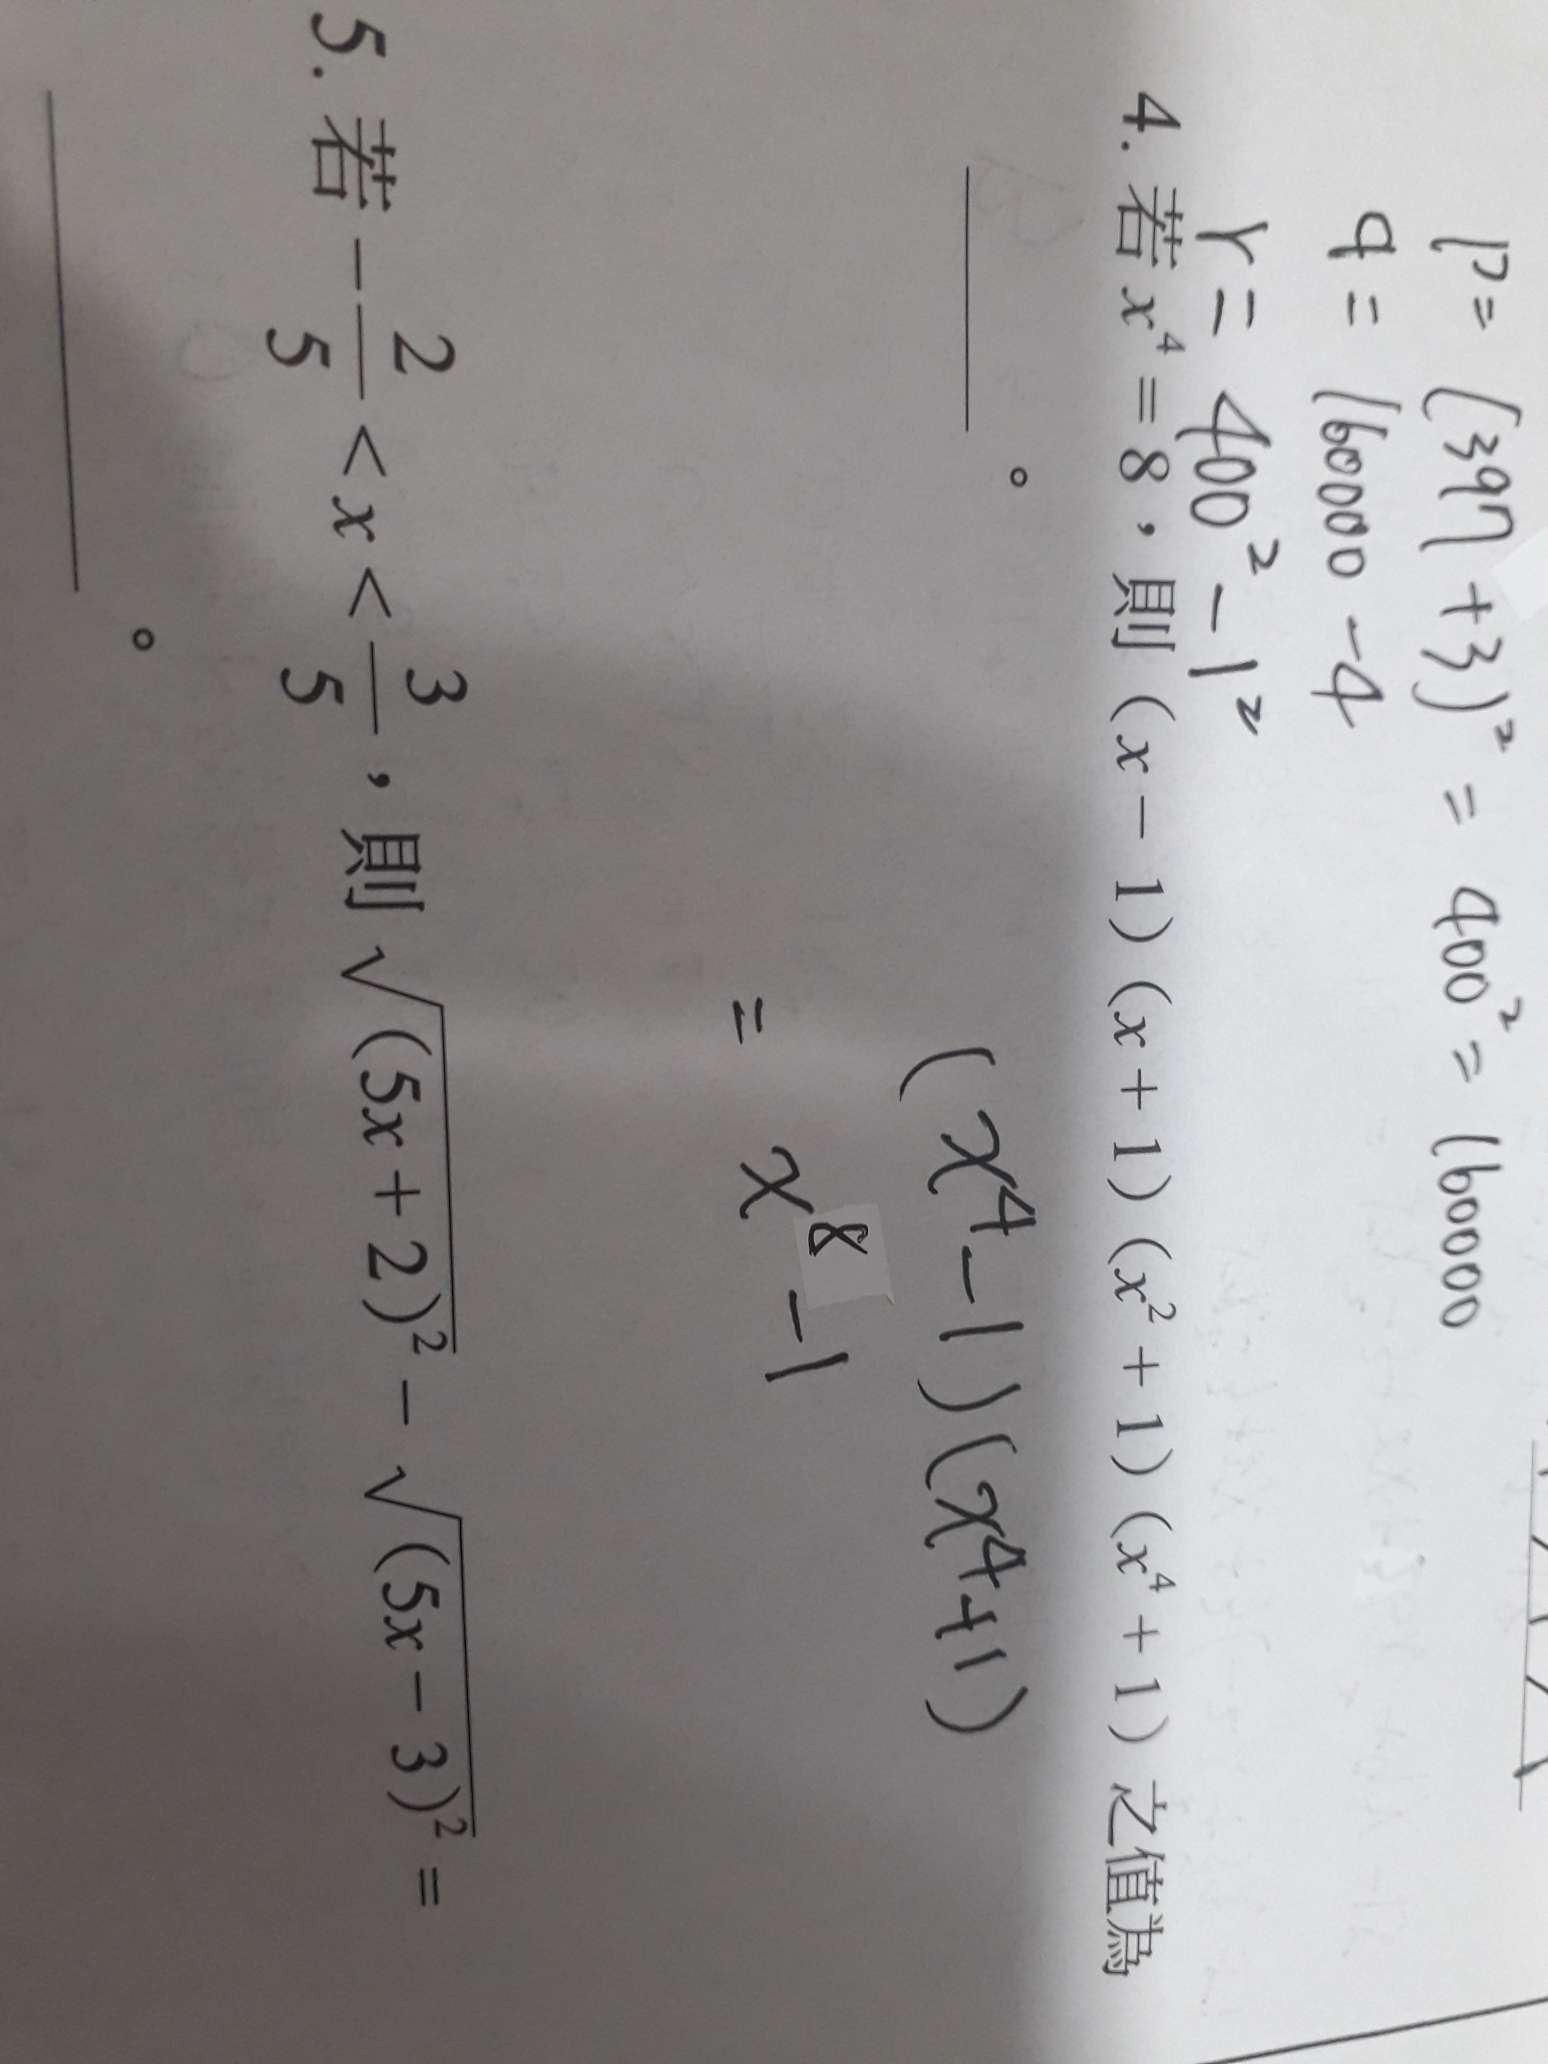 p = (397 + 3)² = 400² = 160000
q = 160000 - 4
r = 400² - 1²
4. 若 x⁴ = 8，則 (x - 1) (x + 1) (x² + 1) (x⁴ + 1) 之值為
______。
(x⁴ - 1)(x⁴ + 1)
= x⁸ - 1
5. 若 -2/5 < x < 3/5，則 √(5x + 2)² - √(5x - 3)² =
______。